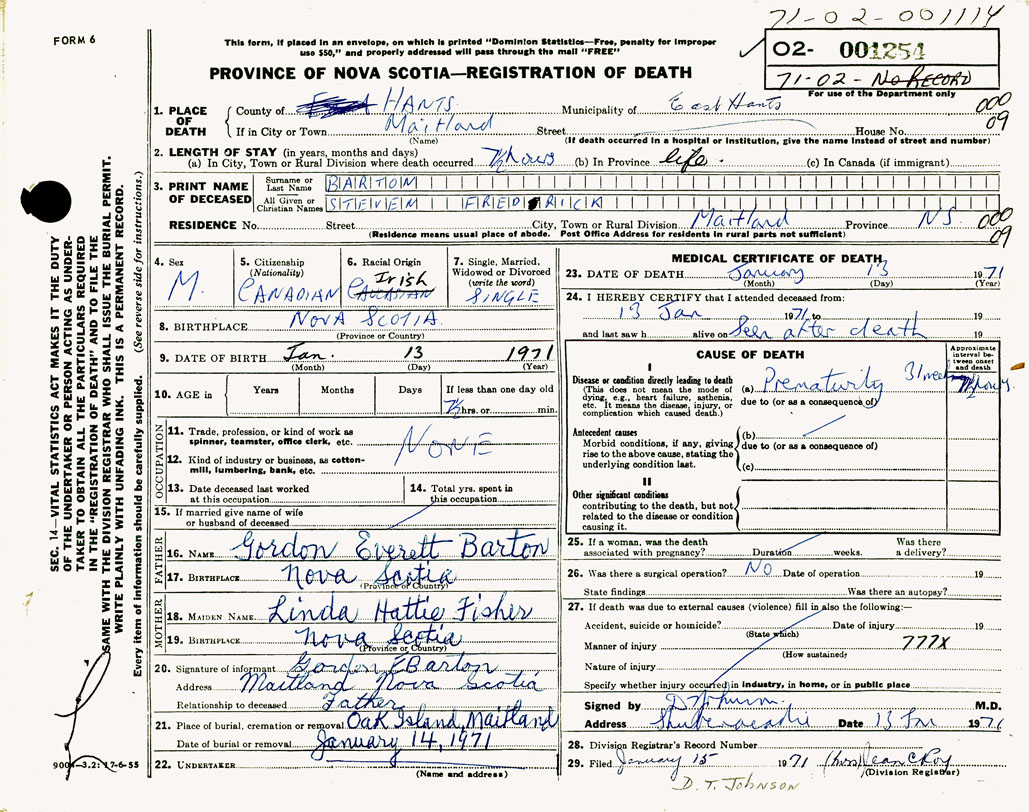 71-02-001114
FORM 6
This form, if placed in an envelope, on which is printed "Dominion Statistics—Free, penalty for improper
use $50," and properly addressed will pass through the mail "FREE"
02- 001254
71-02- NO RECORD
For use of the Department only
PROVINCE OF NOVA SCOTIA—REGISTRATION OF DEATH
1. PLACE OF DEATH
County of HANTS Municipality of East Hants
000
09
If in City or Town Maitland Street House No.
(Name) (If death occurred in a hospital or institution, give the name instead of street and number)
2. LENGTH OF STAY (in years, months and days)
(a) In City, Town or Rural Division where death occurred 7½ hours (b) In Province life. (c) In Canada (if immigrant)
3. PRINT NAME OF DECEASED
Surname or Last Name BARTON
All Given or Christian Names STEVEN FREDRICK
RESIDENCE No. Street City, Town or Rural Division Maitland Province NS.
000
09
(Residence means usual place of abode. Post Office Address for residents in rural parts not sufficient)
4. Sex
M.
5. Citizenship
(Nationality)
CANADIAN
6. Racial Origin
Irish
CAUCASIAN
7. Single, Married,
Widowed or Divorced
(write the word)
SINGLE
8. BIRTHPLACE NOVA SCOTIA
(Province or Country)
9. DATE OF BIRTH Jan. 13 1971
(Month) (Day) (Year)
10. AGE in
Years Months Days If less than one day old
7½ hrs. or min.
OCCUPATION
11. Trade, profession, or kind of work as
spinner, teamster, office clerk, etc.
NONE
12. Kind of industry or business, as cotton-
mill, lumbering, bank, etc.
13. Date deceased last worked
at this occupation
14. Total yrs. spent in
this occupation
15. If married give name of wife
or husband of deceased
FATHER
16. NAME Gordon Everett Barton
17. BIRTHPLACE Nova Scotia
(Province or Country)
MOTHER
18. MAIDEN NAME Linda Hattie Fisher
19. BIRTHPLACE Nova Scotia
(Province or Country)
20. Signature of informant Gordon E Barton
Address Maitland Nova Scotia
Relationship to deceased Father
21. Place of burial, cremation or removal Oak Island, Maitland
Date of burial or removal January 14, 1971
22. UNDERTAKER
(Name and address)
MEDICAL CERTIFICATE OF DEATH
23. DATE OF DEATH January 13 1971
(Month) (Day) (Year)
24. I HEREBY CERTIFY that I attended deceased from:
13 Jan 1971 to 19
and last saw h alive on Seen after death 19
CAUSE OF DEATH
Approximate
interval be-
tween onset
and death
I
Disease or condition directly leading to death
(This does not mean the mode of
dying, e.g., heart failure, asthenia,
etc. It means the disease, injury, or
complication which caused death.)
(a) Prematurity 31 weeks 7½ hours
due to (or as a consequence of)
Antecedent causes
Morbid conditions, if any, giving
rise to the above cause, stating the
underlying condition last.
(b)
due to (or as a consequence of)
(c)
II
Other significant conditions
contributing to the death, but not
related to the disease or condition
causing it.
25. If a woman, was the death
associated with pregnancy? Duration weeks. Was there
a delivery?
26. Was there a surgical operation? NO Date of operation 19
State findings Was there an autopsy?
27. If death was due to external causes (violence) fill in also the following:—
Accident, suicide or homicide? Date of injury 19
(State which)
Manner of injury 777X
(How sustained)
Nature of injury
Specify whether injury occurred in industry, in home, or in public place
Signed by M.D.
Address Shubenacadie Date 13 Jan 1971
28. Division Registrar's Record Number
29. Filed January 15 1971 (Mrs) Jean C Roy
(Division Registrar)
D. T. JOHNSON
SEC. 14—VITAL STATISTICS ACT MAKES IT THE DUTY
OF THE UNDERTAKER OR PERSON ACTING AS UNDER-
TAKER TO OBTAIN ALL THE PARTICULARS REQUIRED
IN THE "REGISTRATION OF DEATH" AND TO FILE THE
SAME WITH THE DIVISION REGISTRAR WHO SHALL ISSUE THE BURIAL PERMIT.
WRITE PLAINLY WITH UNFADING INK. THIS IS A PERMANENT RECORD.
Every item of information should be carefully supplied. (See reverse side for instructions.)
9004—3.2: 17-6-55